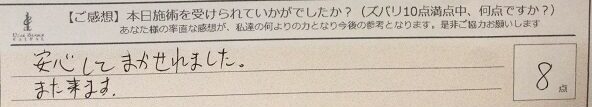 【ご感想】本日施術を受けられていかがでしたか？（ズバリ10点満点中、何点ですか？）
あなた様の率直な感想が、私達の何よりの力となり今後の参考となります。是非ご協力お願いします
安心してまかせれました。
また来ます.
8点